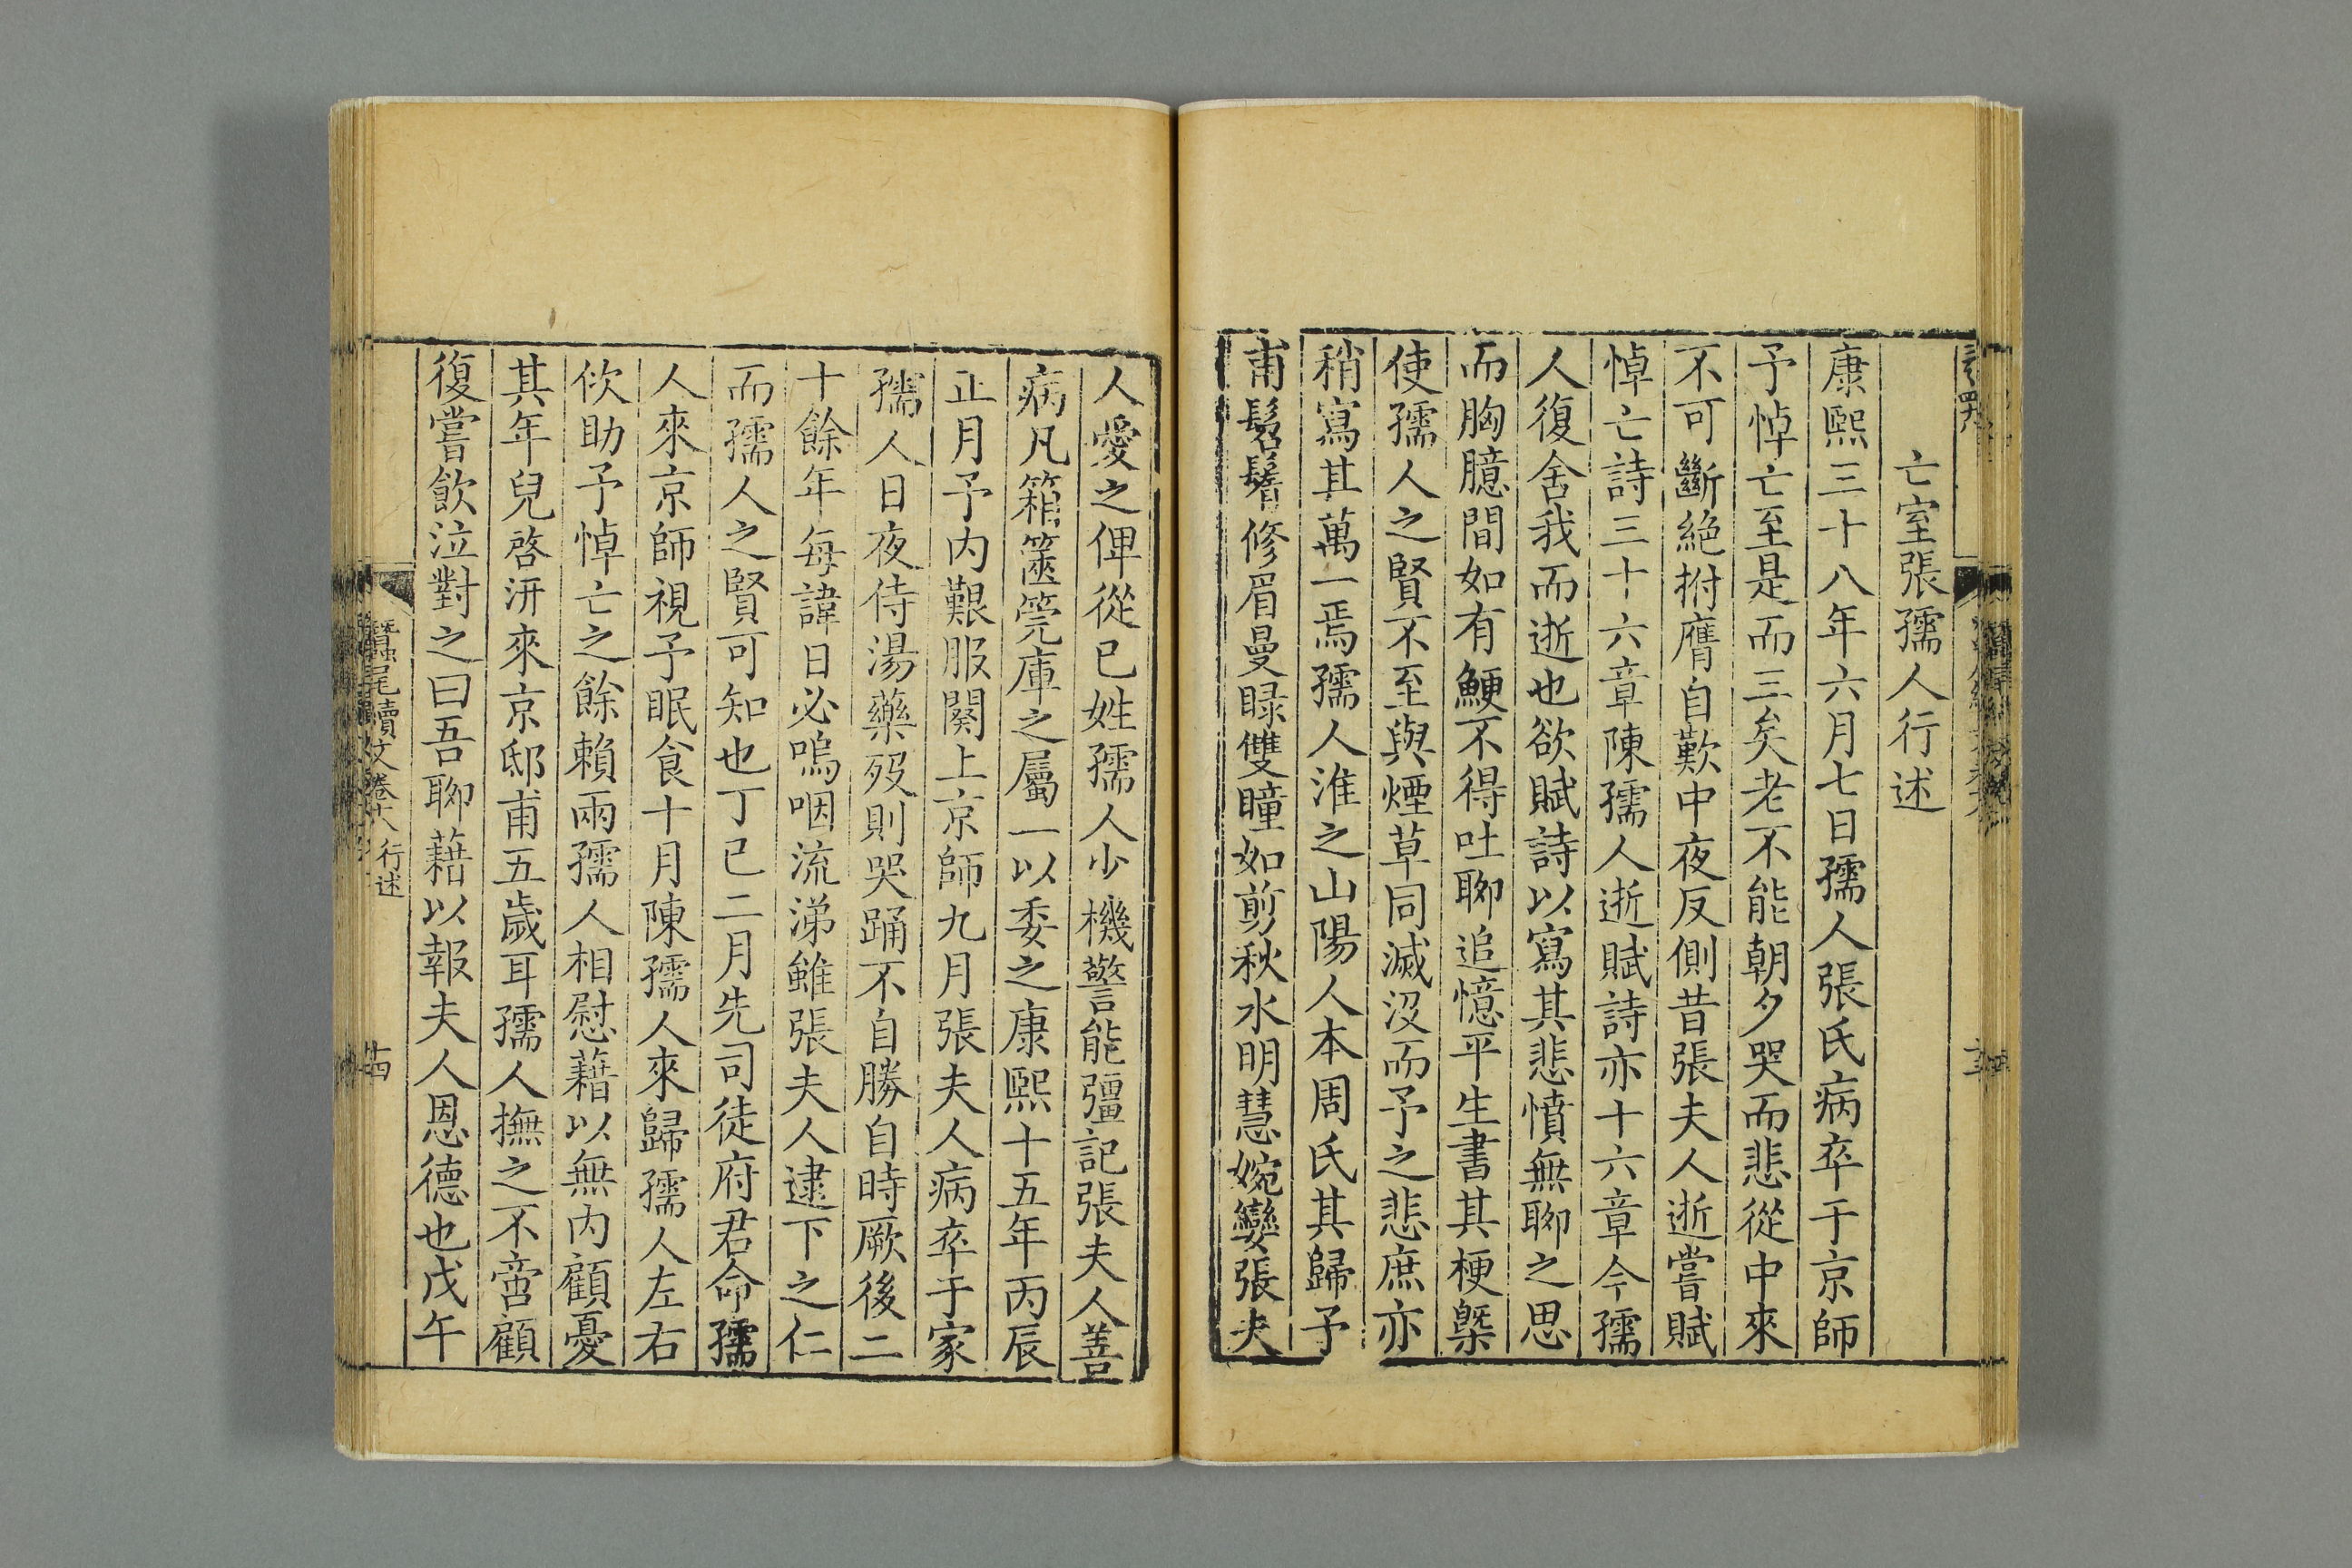 亡室張孺人行述
康熙三十八年六月七日孺人張氏病卒于京師
予悼亡至是而三矣老不能朝夕哭而悲從中來
不可斷絶拊膺自歎中夜反側昔張夫人逝嘗賦
悼亡詩三十六章陳孺人逝賦詩亦十六章今孺
人復舍我而逝也欲賦詩以寫其悲憤無聊之思
而胸臆間如有鯁不得吐聊追憶平生書其梗槩
使孺人之賢不至與煙草同滅沒而予之悲庶亦
稍寫其萬一焉孺人淮之山陽人本周氏其歸予
甫髫鬌修眉曼睩雙瞳如剪秋水明慧婉孌張夫
人愛之俾從己姓孺人少機警能彊記張夫人善
病凡箱篋筦庫之屬一以委之康熙十五年丙辰
正月予内艱服闋上京師九月張夫人病卒于家
孺人日夜侍湯藥歿則哭踊不自勝自時厥後二
十餘年每諱日必嗚咽流涕雖張夫人逮下之仁
而孺人之賢可知也丁巳二月先司徒府君命孺
人來京師視予眠食十月陳孺人來歸孺人左右
佽助予悼亡之餘賴兩孺人相慰藉以無内顧憂
其年兒啓汧來京邸甫五歲耳孺人撫之不啻顧
復嘗飲泣對之曰吾聊藉以報夫人恩德也戊午
蠶尾續文卷十八 行述